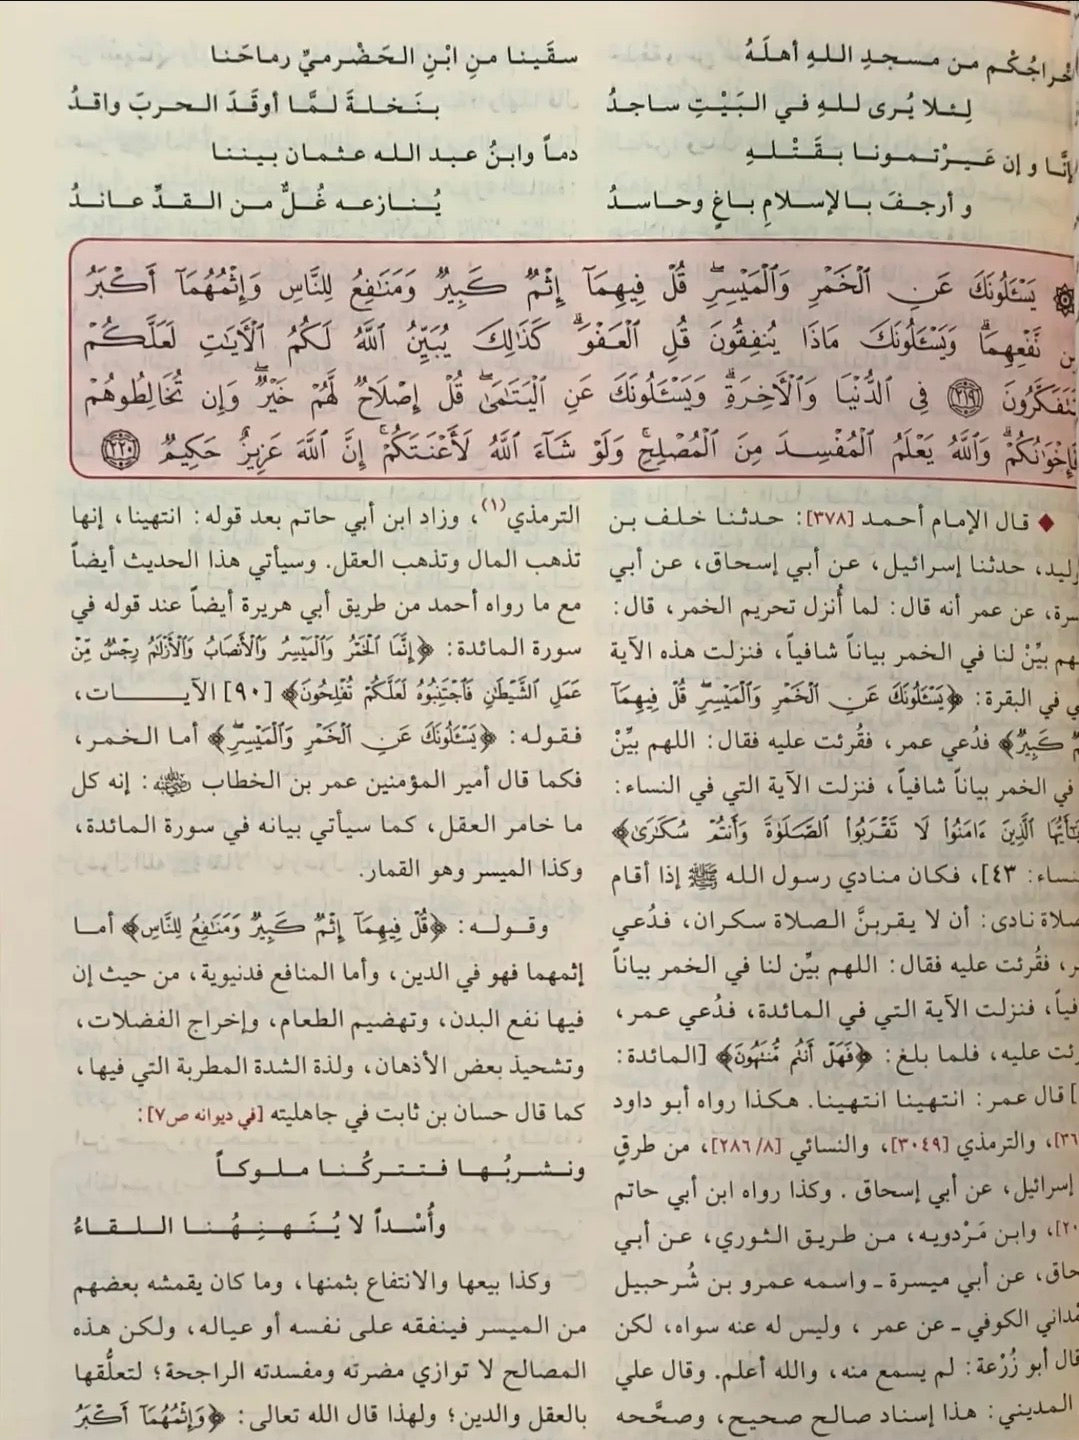 خراجُكم من مسجدِ اللهِ أهلَهُ
لِئلا يُرى للهِ في البَيْتِ ساجدُ
إنَّا وإن عَيرْتمونا بقَتْلهِ
وأرجفَ بالإسلامِ باغٍ وحاسدُ
سقَينا منِ ابْنِ الحَضْرميِّ رماحَنا
بنَخلةَ لمَّا أوقَدَ الحربَ واقدُ
دماً وابنُ عبد الله عثمان بيننا
يُنازعه غُلٌّ من القدِّ عاندُ
۞ يَسْـَٔلُونَكَ عَنِ ٱلْخَمْرِ وَٱلْمَيْسِرِۖ قُلْ فِيهِمَآ إِثْمٌ كَبِيرٌ وَمَنَٰفِعُ لِلنَّاسِ وَإِثْمُهُمَآ أَكْبَرُ
مِن نَّفْعِهِمَاۗ وَيَسْـَٔلُونَكَ مَاذَا يُنفِقُونَ قُلِ ٱلْعَفْوَۗ كَذَٰلِكَ يُبَيِّنُ ٱللَّهُ لَكُمُ ٱلْأَيَٰتِ لَعَلَّكُمْ
تَتَفَكَّرُونَ ﴿٢١٩﴾ فِى ٱلدُّنْيَا وَٱلْأَخِرَةِۗ وَيَسْـَٔلُونَكَ عَنِ ٱلْيَتَٰمَىٰۖ قُلْ إِصْلَاحٌ لَّهُمْ خَيْرٌۖ وَإِن تُخَالِطُوهُمْ
فَإِخْوَٰنُكُمْۚ وَٱللَّهُ يَعْلَمُ ٱلْمُفْسِدَ مِنَ ٱلْمُصْلِحِۚ وَلَوْ شَآءَ ٱللَّهُ لَأَعْنَتَكُمْۚ إِنَّ ٱللَّهَ عَزِيزٌ حَكِيمٌ ﴿٢٢٠﴾
◆ قال الإمام أحمد [٣٧٨]: حدثنا خلف بن
وليد، حدثنا إسرائيل، عن أبي إسحاق، عن أبي
سرة، عن عمر أنه قال: لما أُنزل تحريم الخمر، قال:
هم بيِّنْ لنا في الخمر بياناً شافياً، فنزلت هذه الآية
ي في البقرة: ﴿يَسْـَٔلُونَكَ عَنِ ٱلْخَمْرِ وَٱلْمَيْسِرِۖ قُلْ فِيهِمَآ
مٌ كَبِيرٌ﴾ فدُعي عمر، فقُرئت عليه فقال: اللهم بيِّنْ
في الخمر بياناً شافياً، فنزلت الآية التي في النساء:
يَٰٓأَيُّهَا ٱلَّذِينَ ءَامَنُوا۟ لَا تَقْرَبُوا۟ ٱلصَّلَوٰةَ وَأَنتُمْ سُكَٰرَىٰ﴾
نساء: ٤٣]، فكان منادي رسول الله ﷺ إذا أقام
صلاة نادى: أن لا يقربنَّ الصلاة سكران، فدُعي
ر، فقُرئت عليه فقال: اللهم بيِّن لنا في الخمر بياناً
فياً، فنزلت الآية التي في المائدة، فدُعي عمر،
رئت عليه، فلما بلغ: ﴿فَهَلْ أَنتُم مُّنتَهُونَ﴾ [المائدة:
] قال عمر: انتهينا انتهينا. هكذا رواه أبو داود
٣٦]، والترمذي [٣٠٤٩]، والنسائي [٢٨٦/٨]، من طرقٍ
إسرائيل، عن أبي إسحاق. وكذا رواه ابن أبي حاتم
٢٠]، وابن مَرْدويه، من طريق الثوري، عن أبي
حاق، عن أبي ميسرة ـ واسمه عمرو بن شُرحبيل
مْداني الكوفي ـ عن عمر، وليس له عنه سواه، لكن
قال أبو زُرْعة: لم يسمع منه، والله أعلم. وقال علي
المديني: هذا إسناد صالح صحيح، وصحَّحه
الترمذي(١)، وزاد ابن أبي حاتم بعد قوله: انتهينا، إنها
تذهب المال وتذهب العقل. وسيأتي هذا الحديث أيضاً
مع ما رواه أحمد من طريق أبي هريرة أيضاً عند قوله في
سورة المائدة: ﴿إِنَّمَا ٱلْخَمْرُ وَٱلْمَيْسِرُ وَٱلْأَنصَابُ وَٱلْأَزْلَٰمُ رِجْسٌ مِّنْ
عَمَلِ ٱلشَّيْطَٰنِ فَٱجْتَنِبُوهُ لَعَلَّكُمْ تُفْلِحُونَ﴾ [٩٠] الآيـات،
فقوله: ﴿يَسْـَٔلُونَكَ عَنِ ٱلْخَمْرِ وَٱلْمَيْسِرِۖ﴾ أما الخمر،
فكما قال أمير المؤمنين عمر بن الخطاب رضي الله عنه: إنه كل
ما خامر العقل، كما سيأتي بيانه في سورة المائدة،
وكذا الميسر وهو القمار.
وقوله: ﴿قُلْ فِيهِمَآ إِثْمٌ كَبِيرٌ وَمَنَٰفِعُ لِلنَّاسِ﴾ أما
إثمهما فهو في الدين، وأما المنافع فدنيوية، من حيث إن
فيها نفع البدن، وتهضيم الطعام، وإخراج الفضلات،
وتشحيذ بعض الأذهان، ولذة الشدة المطربة التي فيها،
كما قال حسان بن ثابت في جاهليته [في ديوانه ص٧]:
ونشربُها فتتركُنا ملوكاً
وأُسْداً لا يُنَهنِهُنا اللقاءُ
وكذا بيعها والانتفاع بثمنها، وما كان يقمشه بعضهم
من الميسر فينفقه على نفسه أو عياله، ولكن هذه
المصالح لا توازي مضرته ومفسدته الراجحة؛ لتعلُّقها
بالعقل والدين؛ ولهذا قال الله تعالى: ﴿وَإِثْمُهُمَآ أَكْبَرُ